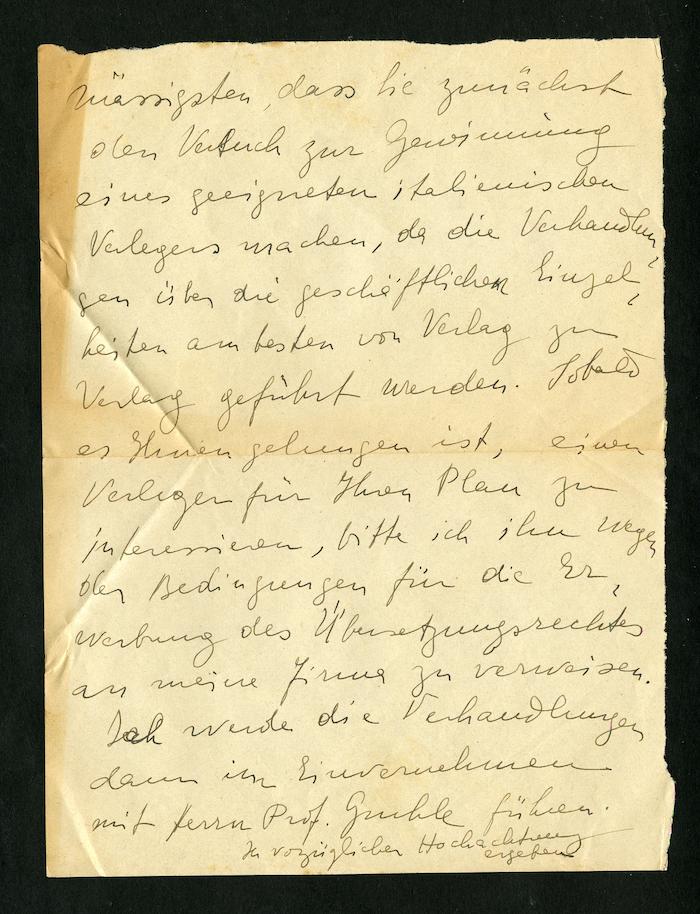 mässigsten, dass Sie zunächst
den Versuch zur Gewinnung
eines geeigneten italienischen
Verlegers machen, da die Verhandlun-
gen über die geschäftlichen Einzel-
heiten am besten von Verlag zu
Verlag geführt werden. Sobald
es Ihnen gelungen ist, einen
Verleger für Ihren Plan zu
interessieren, bitte ich ihn wegen
der Bedingungen für die Er-
werbung des Übersetzungsrechtes
an meine Firma zu verweisen.
Ich werde die Verhandlungen
dann im Einvernehmen
mit Herrn Prof. Gruhle führen.
In vorzüglicher Hochachtung
ergeben